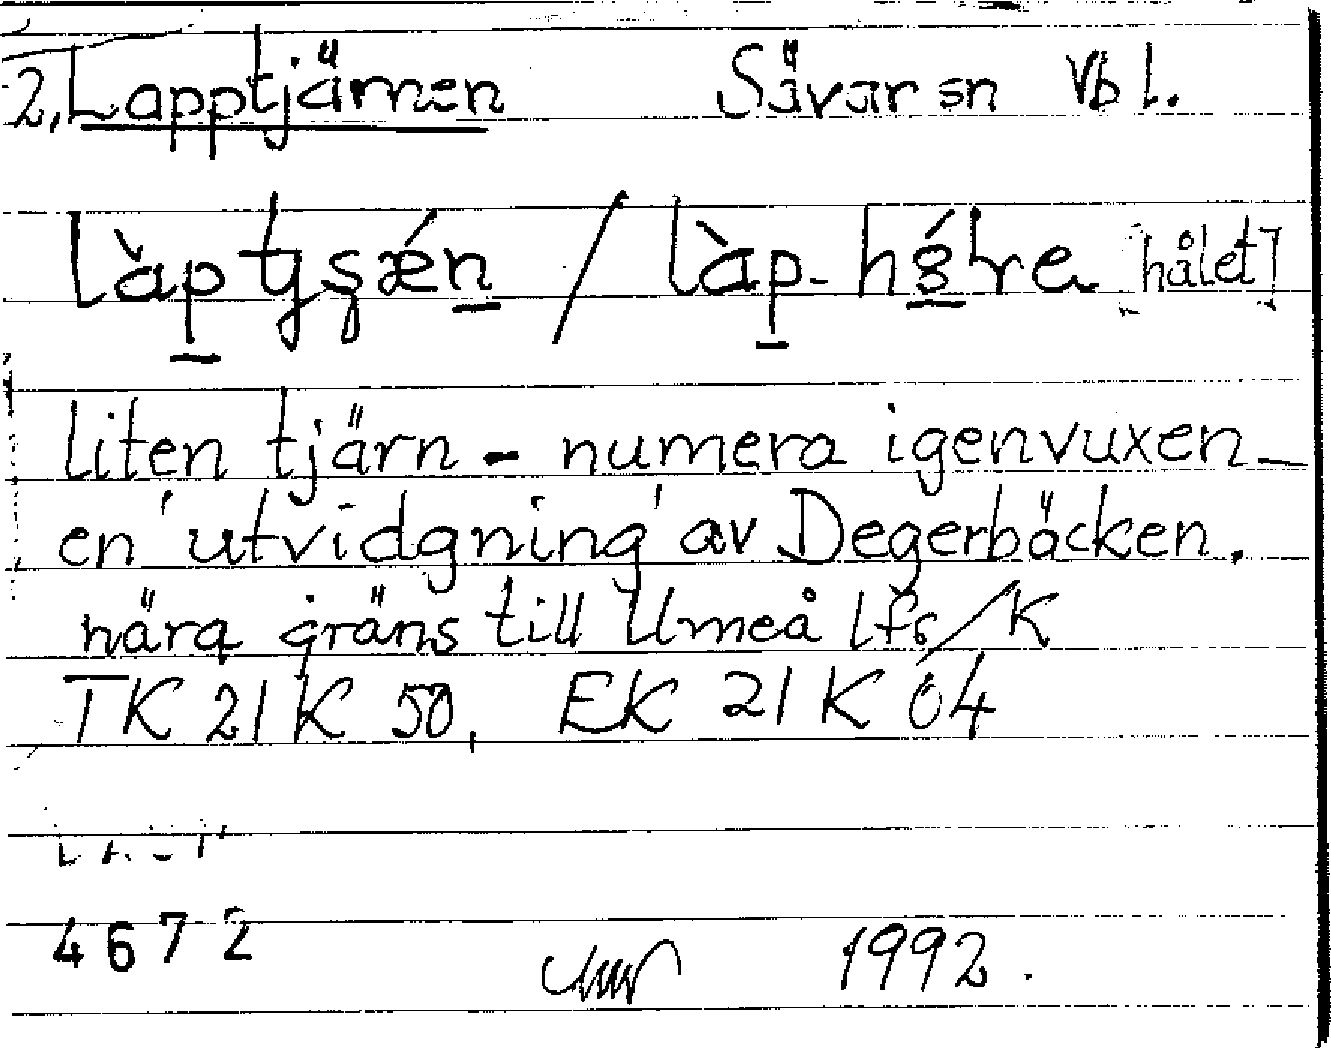 2, Lapptjärnen Sävar sn Vb l.
làp / làp- [hålet]
liten tjärn - numera igenvuxen -
en 'utvidgning' av Degerbäcken.
nära gräns till Umeå lfs/K
TK 21 K 50, EK 21 K 04
4672
1992.